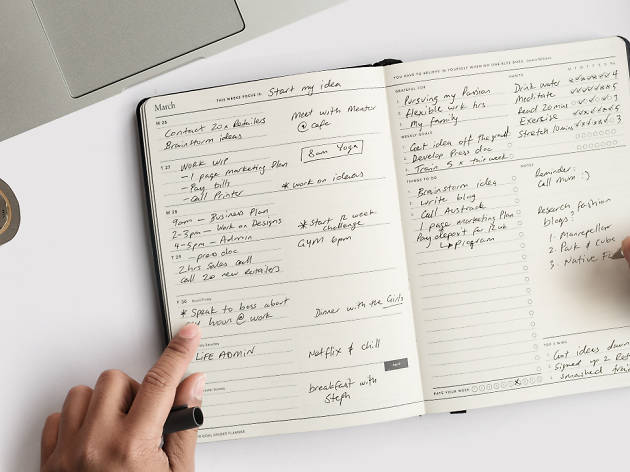 THIS WEEKS FOCUS IS: Start my idea
March
M 26
Contact 20x Retailers
Brainstorm ideas
Meet with Mentor
@ cafe
T 27
WORK WIP
- 1 page marketing Plan
- Pay bills
- Call Printer
8am Yoga
* work on ideas
W 28
9am - Business Plan
2-3pm - Work on Designs
4-5pm - Admin
* Start 12 week
challenge
T 29
- press doc
2hrs Sales call
Call 20 new Retailers
GYM 6pm
F 30
* Speak to boss about
hour @ work
Dinner with the Girls
LIFE ADMIN
Netflix & chill
breakfast with
Steph
YOU HAVE TO BELIEVE IN YOURSELF WHEN NO ONE ELSE DOES.
GRATEFUL FOR
Pursuing my Passion
Flexible work hrs
My family
WEEKLY GOALS
Get idea off the ground
Develop Press doc
Train 5 x this week
THINGS TO DO
Brainstorm idea
Write blog
Call Austrack
1 page marketing Plan
Pay deposit for
Program
HABITS
M T W T F S S
Drink water 4
Meditate
Read 20mins 5
Exercise 6
Stretch 10mins 3
NOTES
Reminder:
Call Mum :)
Research fashion
blogs?
1. Manrepeller
2. Park & Cube
3. Native F
TOP 3 WINS
Got ideas down
Signed up 2 Ret
Smashed train
RATE YOUR WEEK